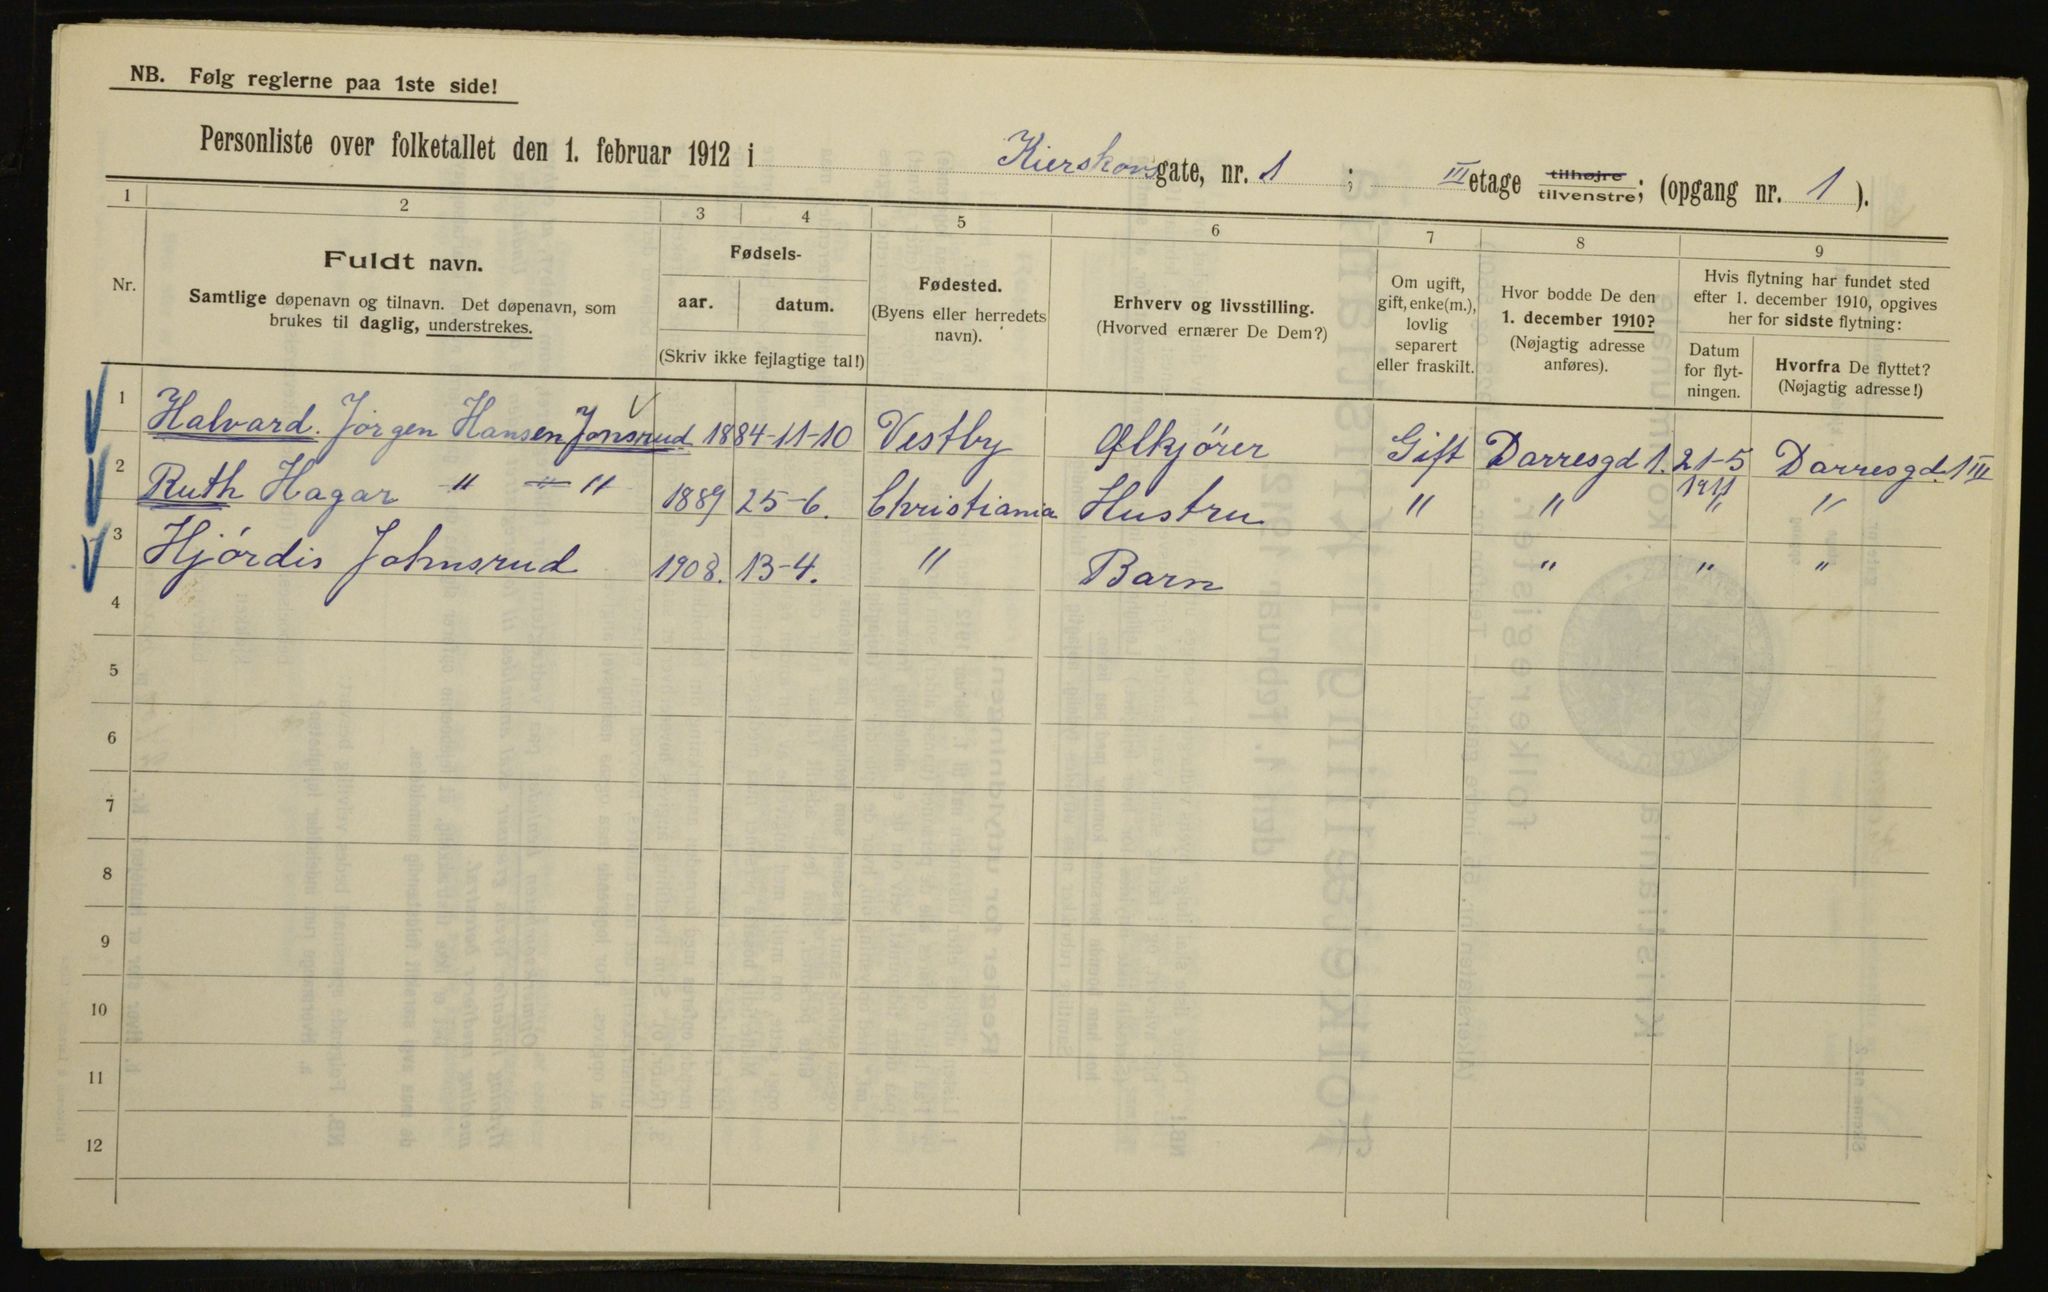 NB. Følg reglerne paa 1ste side!
Personliste over folketallet den 1. februar 1912 i Kierskovs gate, nr. 1 ; III etage tilhøjre tilvenstre; (opgang nr. 1 ).
1 2 3 4 5 6 7 8 9
Nr.
Fuldt navn.
Samtlige døpenavn og tilnavn. Det døpenavn, som
brukes til daglig, understrekes.
Fødsels-
aar. datum.
(Skriv ikke fejlagtige tal!)
Fødested.
(Byens eller herredets
navn).
Erhverv og livsstilling.
(Hvorved ernærer De Dem?)
Om ugift,
gift, enke(m.),
lovlig
separert
eller fraskilt.
Hvor bodde De den
1. december 1910?
(Nøjagtig adresse
anføres).
Hvis flytning har fundet sted
efter 1. december 1910, opgives
her for sidste flytning:
Datum
for flyt-
ningen.
Hvorfra De flyttet?
(Nøjagtig adresse!)
1 Halvard. Jørgen Hansen Jonsrud 1884 11-10 Vestby Ølkjører Gift Darresgd 1. 21-5 1911 Darresgd. 1 III
2 Ruth Hagar " " " 1889 25-6. Christiania Hustru " " " "
3 Hjørdis Johnsrud 1908. 13-4. " Barn " " "
4
5
6
7
8
9
10
11
12